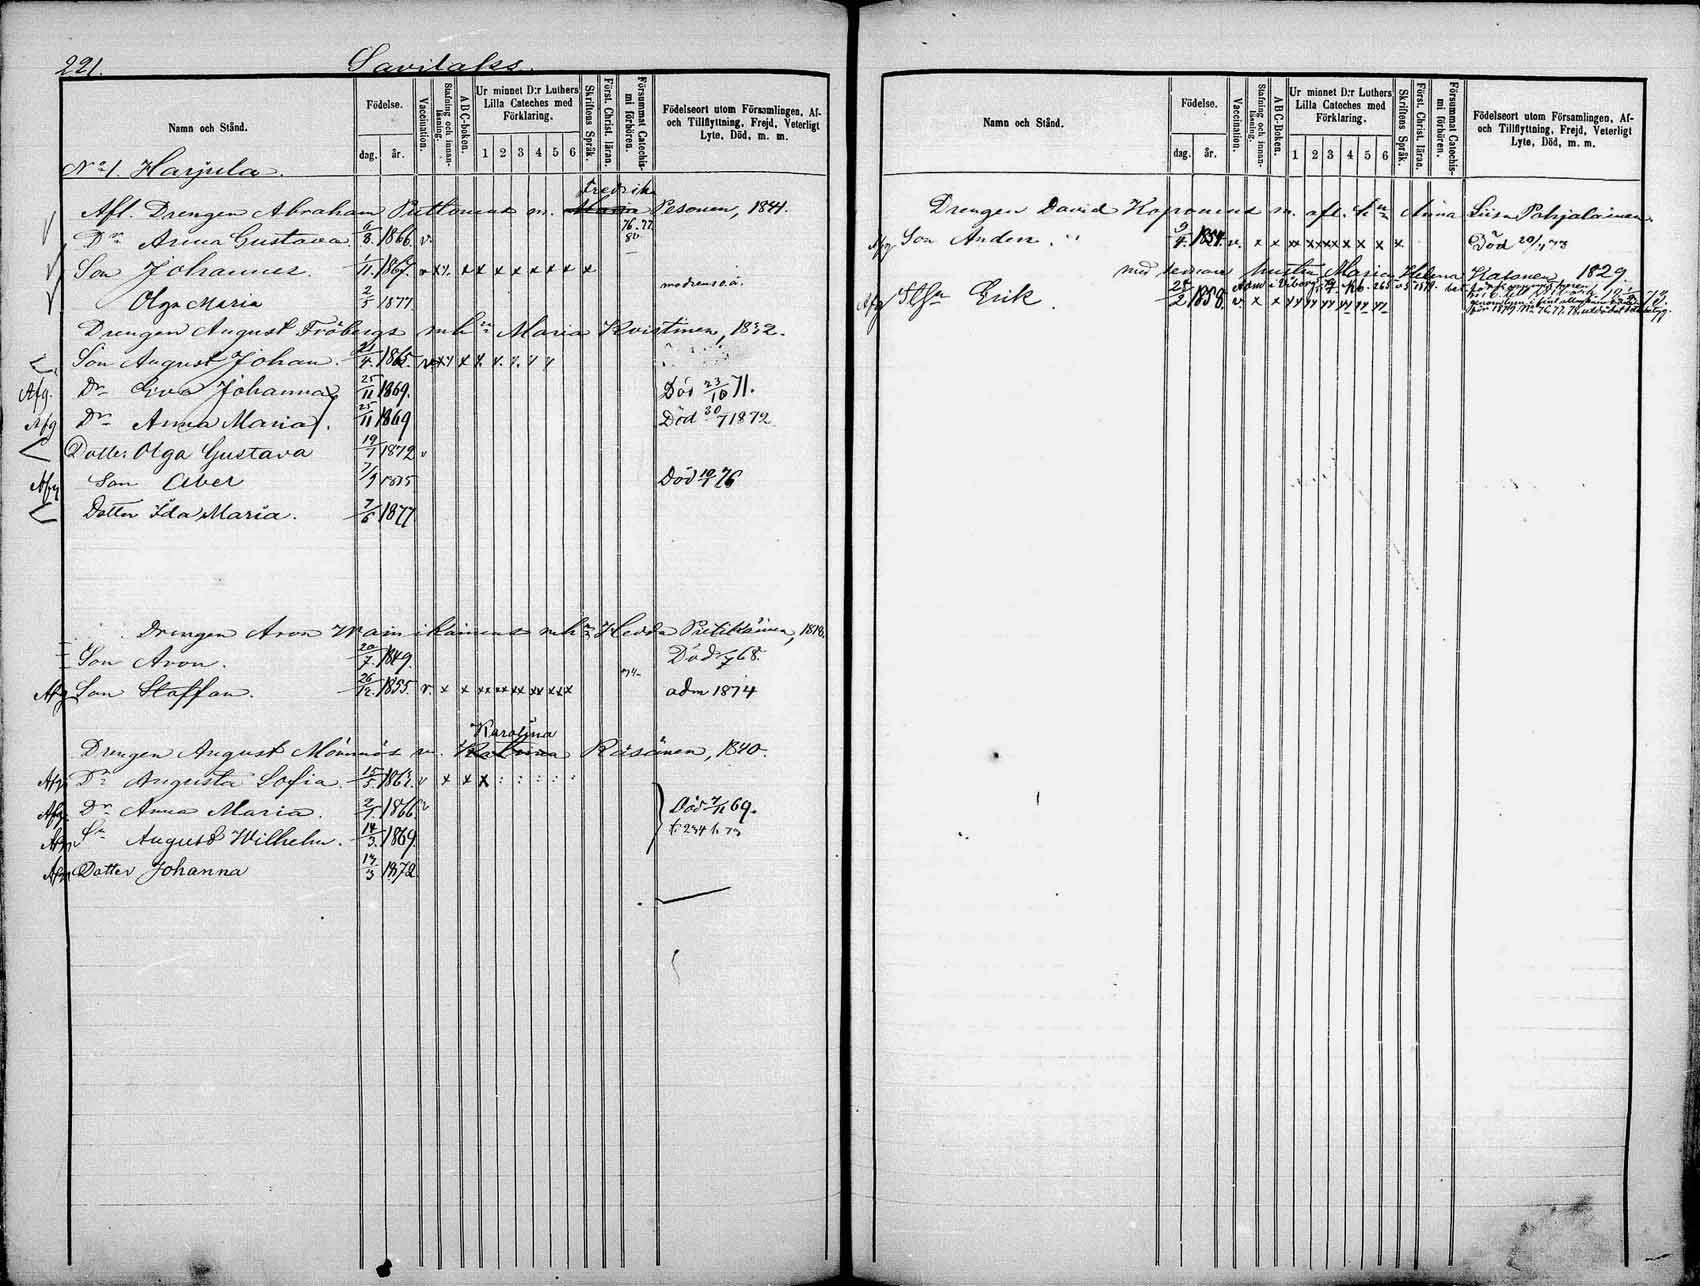 221. Savilaks.
Namn och Stånd.
Födelse.
dag. år.
Vaccination.
Stafning och innan-läsning.
A B C-boken.
Ur minnet D:r Luthers
Lilla Cateches med
Förklaring.
1 2 3 4 5 6
Skriftens Språk.
Först. Christ. läran.
Försummat Catechis-
mi förhören.
Födelseort utom Församlingen, Af-
och Tillflyttning, Frejd, Veterligt
Lyte, Död, m. m.
No 1. Harjula.
Fredrika
Afl. Drengen Abraham Puttonens m. Maria Pesonen, 1841.
76. 77
Dr Anna Gustava 6/8. 1866. v.
80
Son Johannes. 1/11. 1867. v x x x x x x x x x x
Olga Maria 2/5 1877 modrens o.ä.
Drengen August Fröbergs mhn Maria Kvistinen, 1832.
Son August Johan. /4. 1865. v x x x x
Afg. Dr Eva Johanna 25/11 1869. Död 23/10 71.
Afg Dr Anna Maria 25/11 1869 Död 30/7 1872
Dotter Olga Gustava 19/1 1872 v
Afg Son Abel 7/9 1875 Död 10/1 76
Dotter Ida Maria. 7/6 1877
Drengen Aron Wainikainens mhn Hedda Pitkäinen, 1818.
Son Aron. 20/7. 1849. Död /7 68.
Afg Son Staffan. 26/12. 1855. v. x x xx xx xx xx x xx adm 1874
Karolina
Drengen August Mömmös m. Räsänen, 1840.
Afg Dr Augusta Sofia. 15/5. 1863. v x x x : : : : :
Afg. Dr Anna Maria. 2/1. 1866. v Död 7/11 69.
Afg Sn August Wilhelm. 14/3. 1869. t. 234 h. 73
Afg Dotter Johanna 13/3 1872
Namn och Stånd.
Födelse.
dag. år.
Vaccination.
Stafning och innan-läsning.
A B C-boken.
Ur minnet D:r Luthers
Lilla Cateches med
Förklaring.
1 2 3 4 5 6
Skriftens Språk.
Först. Christ. läran.
Försummat Catechis-
mi förhören.
Födelseort utom Församlingen, Af-
och Tillflyttning, Frejd, Veterligt
Lyte, Död, m. m.
Drengen David Kaponens m. afl. hn Anna Liisa Pohjalainen.
Afg Son Anders. 9/4. 1854. v. x x xx xx xx x x x x Död 20/1 73
med sednare hustru Maria Helena Kasonen 1829.
Afg Stfsn Erik. /2. 1858. v. x x